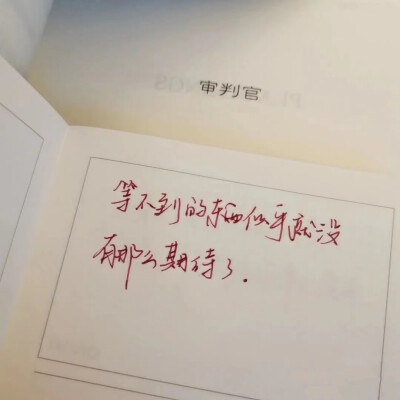 审判官
等不到的东西似乎就没
有那么期待了.